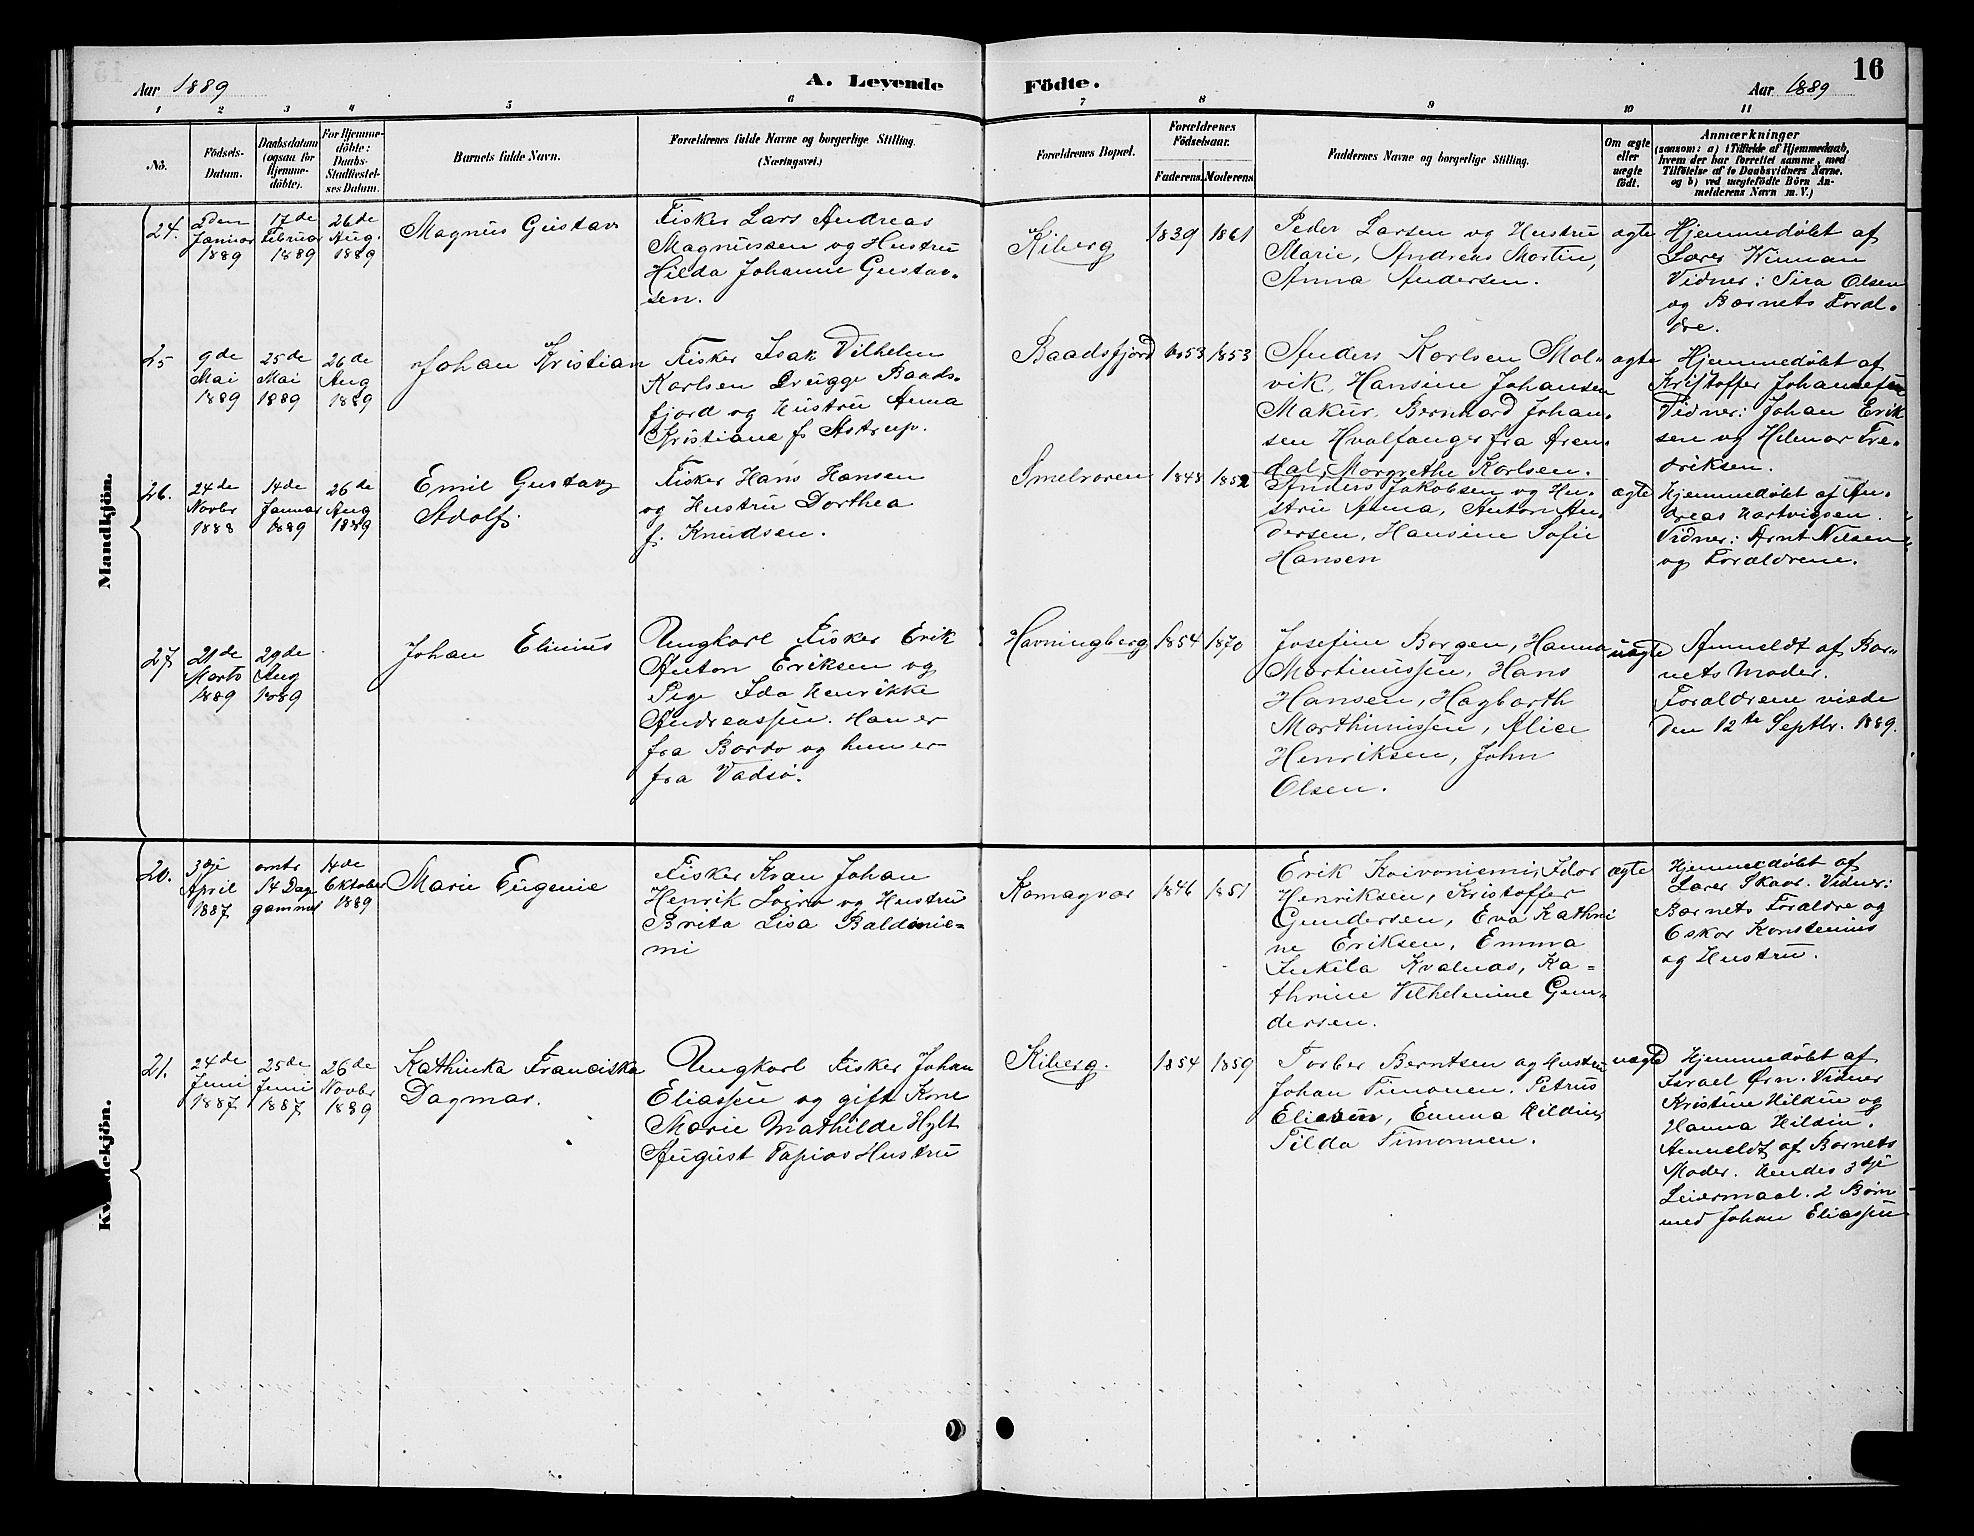 Aar 1889
A. Levende
Födte.
Aar 1889
16
1 2 3 4 5 6 7 8 9 10 11
No.
Födsels-
Datum.
Daabsdatum
(ogsaa for
Hjemme-
döbte).
For Hjemme-
döbte:
Daabs-
Stadfæstel-
ses Datum.
Barnets fulde Navn.
Forældrenes fulde Navne og borgerlige Stilling.
(Næringsvei.)
Forældrenes Bopæl.
Forældrenes
Födselsaar.
Faderens.
Moderens.
Faddernes Navne og borgerlige Stilling.
Om ægte
eller
uægte
födt.
Anmærkninger
(saasom: a) i Tilfælde af Hjemmedaab,
hvem der har forrettet samme, med
Tilföielse af to Daabsvidners Navne,
og b) ved uægtefödte Börn An-
melderens Navn m. V.)
Mandkjön.
24.
2den
Januar
1889
17de
Februar
1889
26de
Aug.
1889
Magnus Gustav
Fisker Lars Andreas
Magnussen og Hustru
Hilda Johanne Gustav-
sen.
Kiberg
1839
1861
Peder Larsen og Hustru
Marie, Andreas Mortin,
Anna Andersen.
ægte
Hjemmedøbt af
Lærer Winman
Vidner: Sira Olsen
og Barnets Foræl-
dre.
25
9de
Mai
1889
25de
Mai
1889
26de
Aug
1889
Johan Kristian
Fisker Isak Vilhelm
Karlsen Brugge Baads-
fjord og Hustru Anna
Kristiane f. Astrup.
Baadsfjord
1853
1853
Anders Karlsen Mol-
vik, Hansine Johansen
Makur, Bernhard Johan-
sen Hvalfanger fra Aren-
dal, Margrethe Karlsen.
ægte
Hjemmedøbt af
Kristoffer Johannesen
Vidner: Johan Erik
sen og Hilmar Fre-
driksen.
26.
24de
Novbr
1888
14de
Januar
1889
26de
Aug
1889
Emil Gustav
Adolf.
Fisker Hans Hansen
og Hustru Dorthea
f. Knudsen.
Smelroren
1848
1852
Anders Jakobsen og Hu-
stru Anna, Anton An-
dersen, Hansine Sofie
Hansen
ægte
Hjemmedøbt af An-
dreas Hartvigsen.
Vidner: Arnt Nilsen
og Forældrene.
27
21de
Marts
1889
29de
Aug
1889
Johan Elinius
Ungkarl Fisker Erik
Anton Eriksen og
Pige Ida Henrikke
Andreassen. Han er
fra Bordø og hun er
fra Vadsø.
Havningberg
1854
1870
Josefine Borgen, Hanna
Martinussen, Hans
Hansen, Hagbarth
Marthinussen, Alice
Henriksen, John
Olsen.
uægte
Anmeldt af Bar-
nets Moder.
Forældrene viede
den 12te Septbr. 1889.
Kvindekjön.
20.
3dje
April
1887
omtr
14 Dage
gammel
14de
Oktober
1889
Marie Eugenie
Fisker Kvæn Johan
Henrik Lojro og Hustru
Brita Lisa Baldonie-
mi
Komagvær
1846
1851
Erik Koivoniemi, Idor
Henriksen, Kristoffer
Gundersen, Eva Kathri
ne Eriksen, Emma
Inkila Kvalnæs, Ka-
thrine Vilhelmine Gun-
dersen.
ægte
Hjemmedøbt af
Lærer Skaar. Vidner:
Barnets Forældre og
Eskor Konstenius
og Hustru.
21.
24de
Juni
1887
25de
Juni
1887
26de
Novbr
1889
Kathinka Franciska
Dagmar.
Ungkarl Fisker Johan
Eliassen og gift Kone
Marie Mathilde Hylt
August Tapios Hustru
Kiberg.
1854
1859
Torber Berntsen og Hustru
Johan Timonen. Petrus
Eliesen, Emma Hildin,
Tilda Timonnen.
uægte
Hjemmedøbt af
Israel Ørn. Vidner
Kristine Hildin og
Hanna Hildin.
Anmeldt af Barnets
Moder. Hendes 3dje
Leiermaal. 2 Børn
med Johan Eliassen